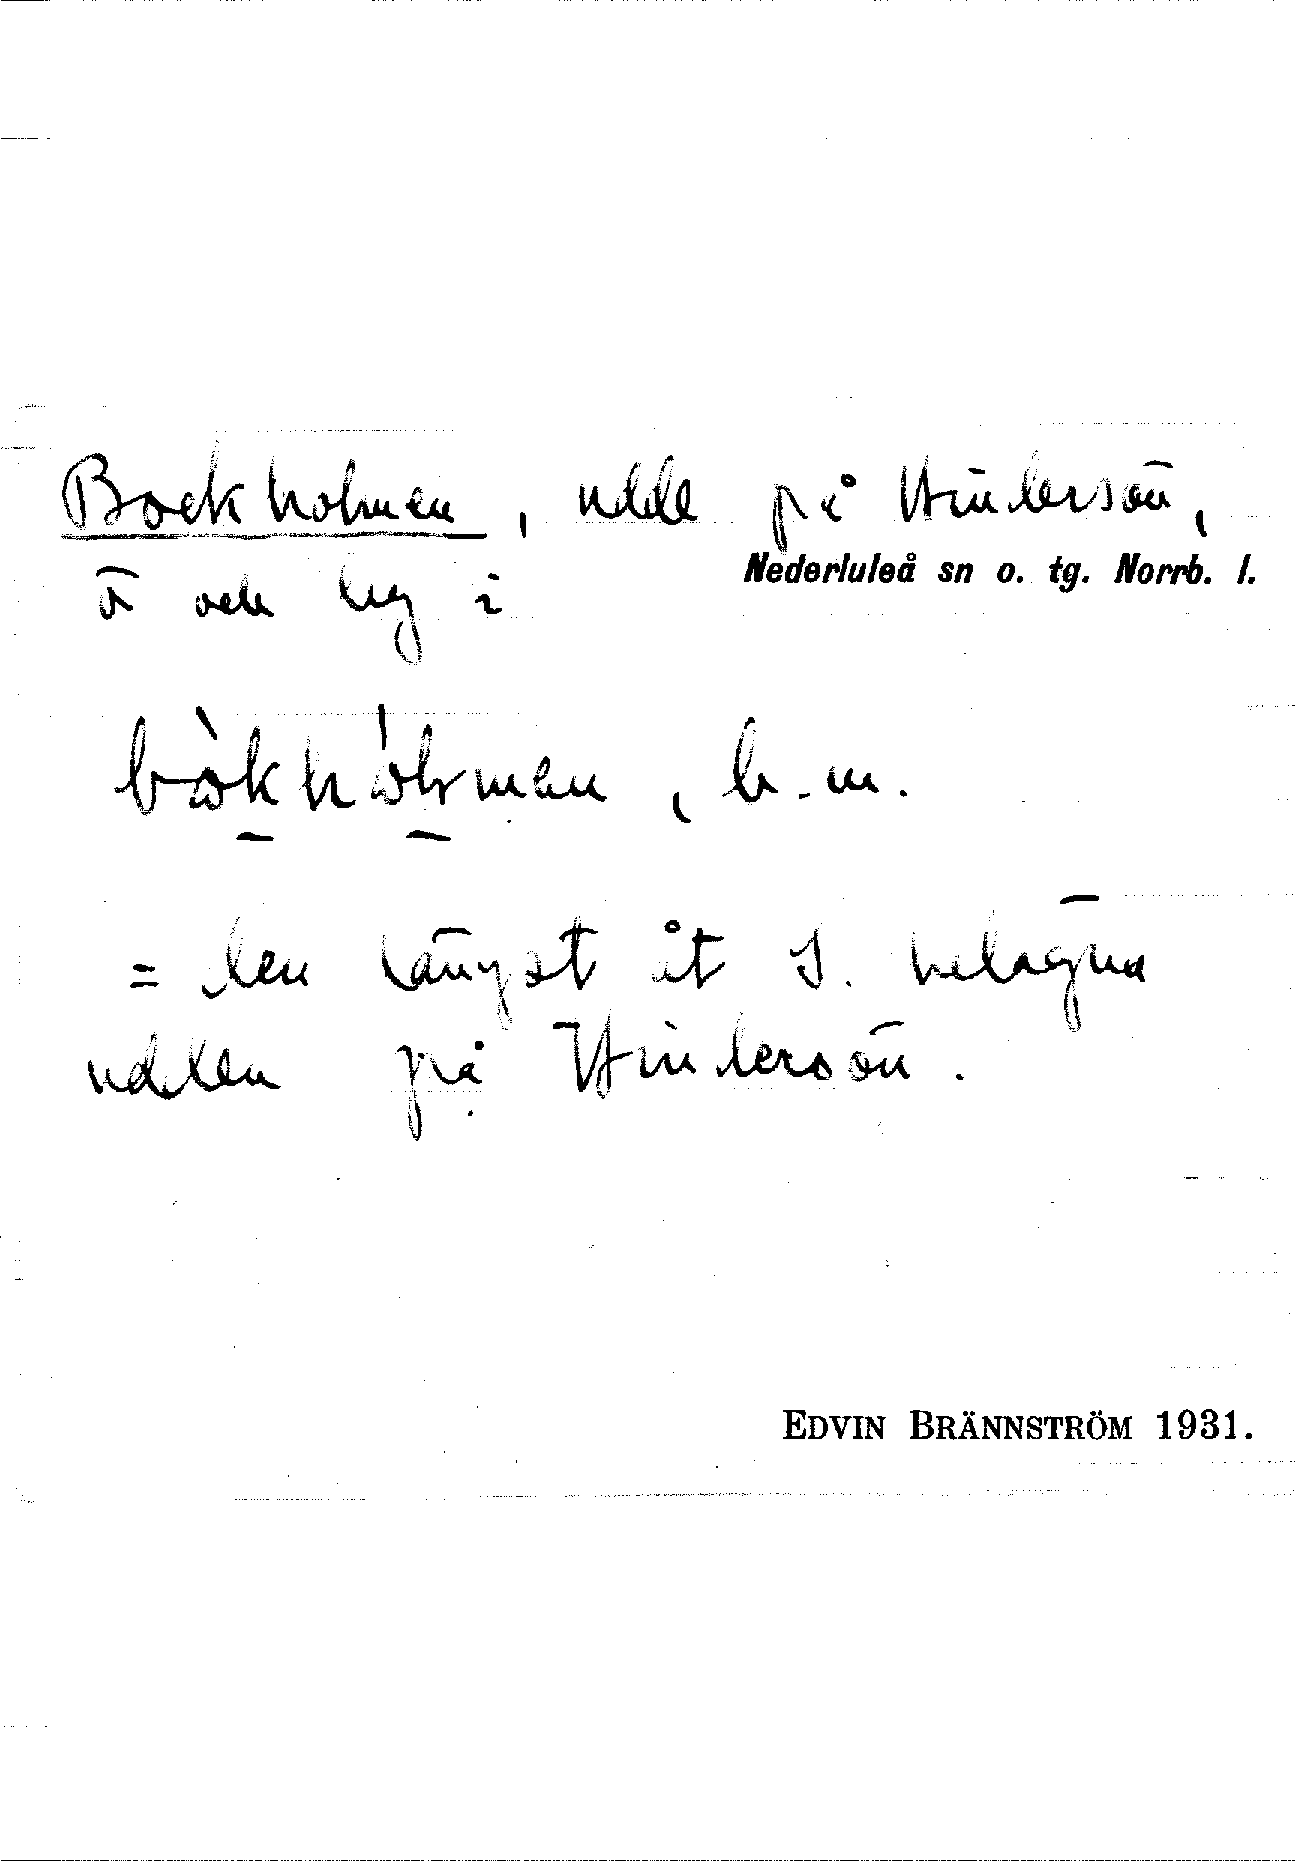 Bockholmen, udde på Hindersön,
Nederluleå sn o. tg. Norrb. l.
ö och hg i
b. m.
= den längst åt S. belägna
udden på Hindersön.
EDVIN BRÄNNSTRÖM 1931.